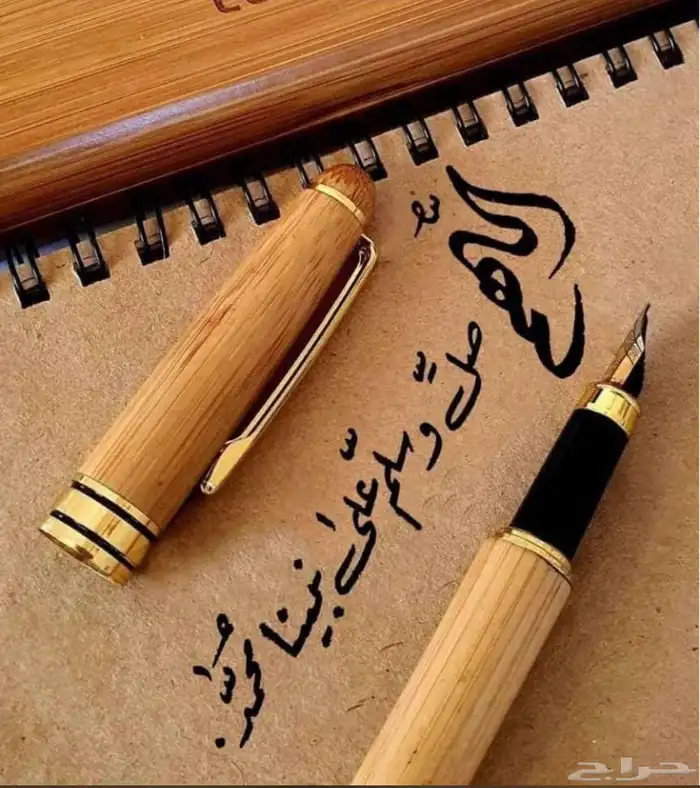 اللهم
صلِّ وسلم على نبينا محمد
حراج